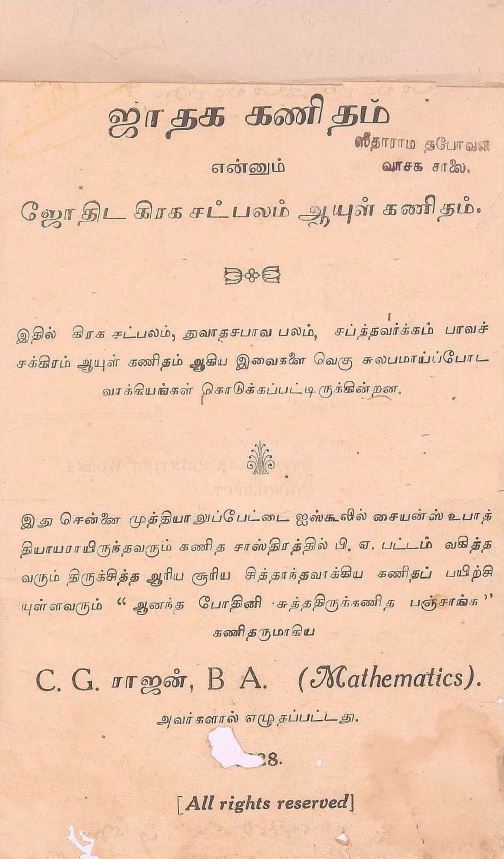 ஜாதக கணிதம்
ஸீதாராம தபோவன
வாசக சாலை.
என்னும்
ஜோதிட கிரக சட்பலம் ஆயுள் கணிதம்.
இதில் கிரக சட்பலம், துவாதசபாவ பலம், சப்த்தவர்க்கம் பாவச்
சக்கிரம் ஆயுள் கணிதம் ஆகிய இவைகளை வெகு சுலபமாய்ப்போட
வாக்கியங்கள் கொடுக்கப்பட்டிருக்கின்றன.
இது சென்னை முத்தியாலுப்பேட்டை ஐஸ்கூலில் சையன்ஸ் உபாத்
தியாயராயிருந்தவரும் கணித சாஸ்திரத்தில் பி. ஏ. பட்டம் வகித்த
வரும் திருக்சித்த ஆரிய சூரிய சித்தாந்தவாக்கிய கணிதப் பயிற்சி
யுள்ளவரும் “ ஆனந்த போதினி சுத்ததிருக்கணித பஞ்சாங்க ”
கணிதருமாகிய
C. G. ராஜன், B A. (Mathematics).
அவர்களால் எழுதப்பட்டது.
28.
[All rights reserved]